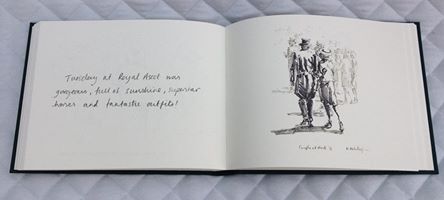 Tuesday at Royal Ascot was
gorgeous, full of sunshine, superstar
horses and fantastic outfits!